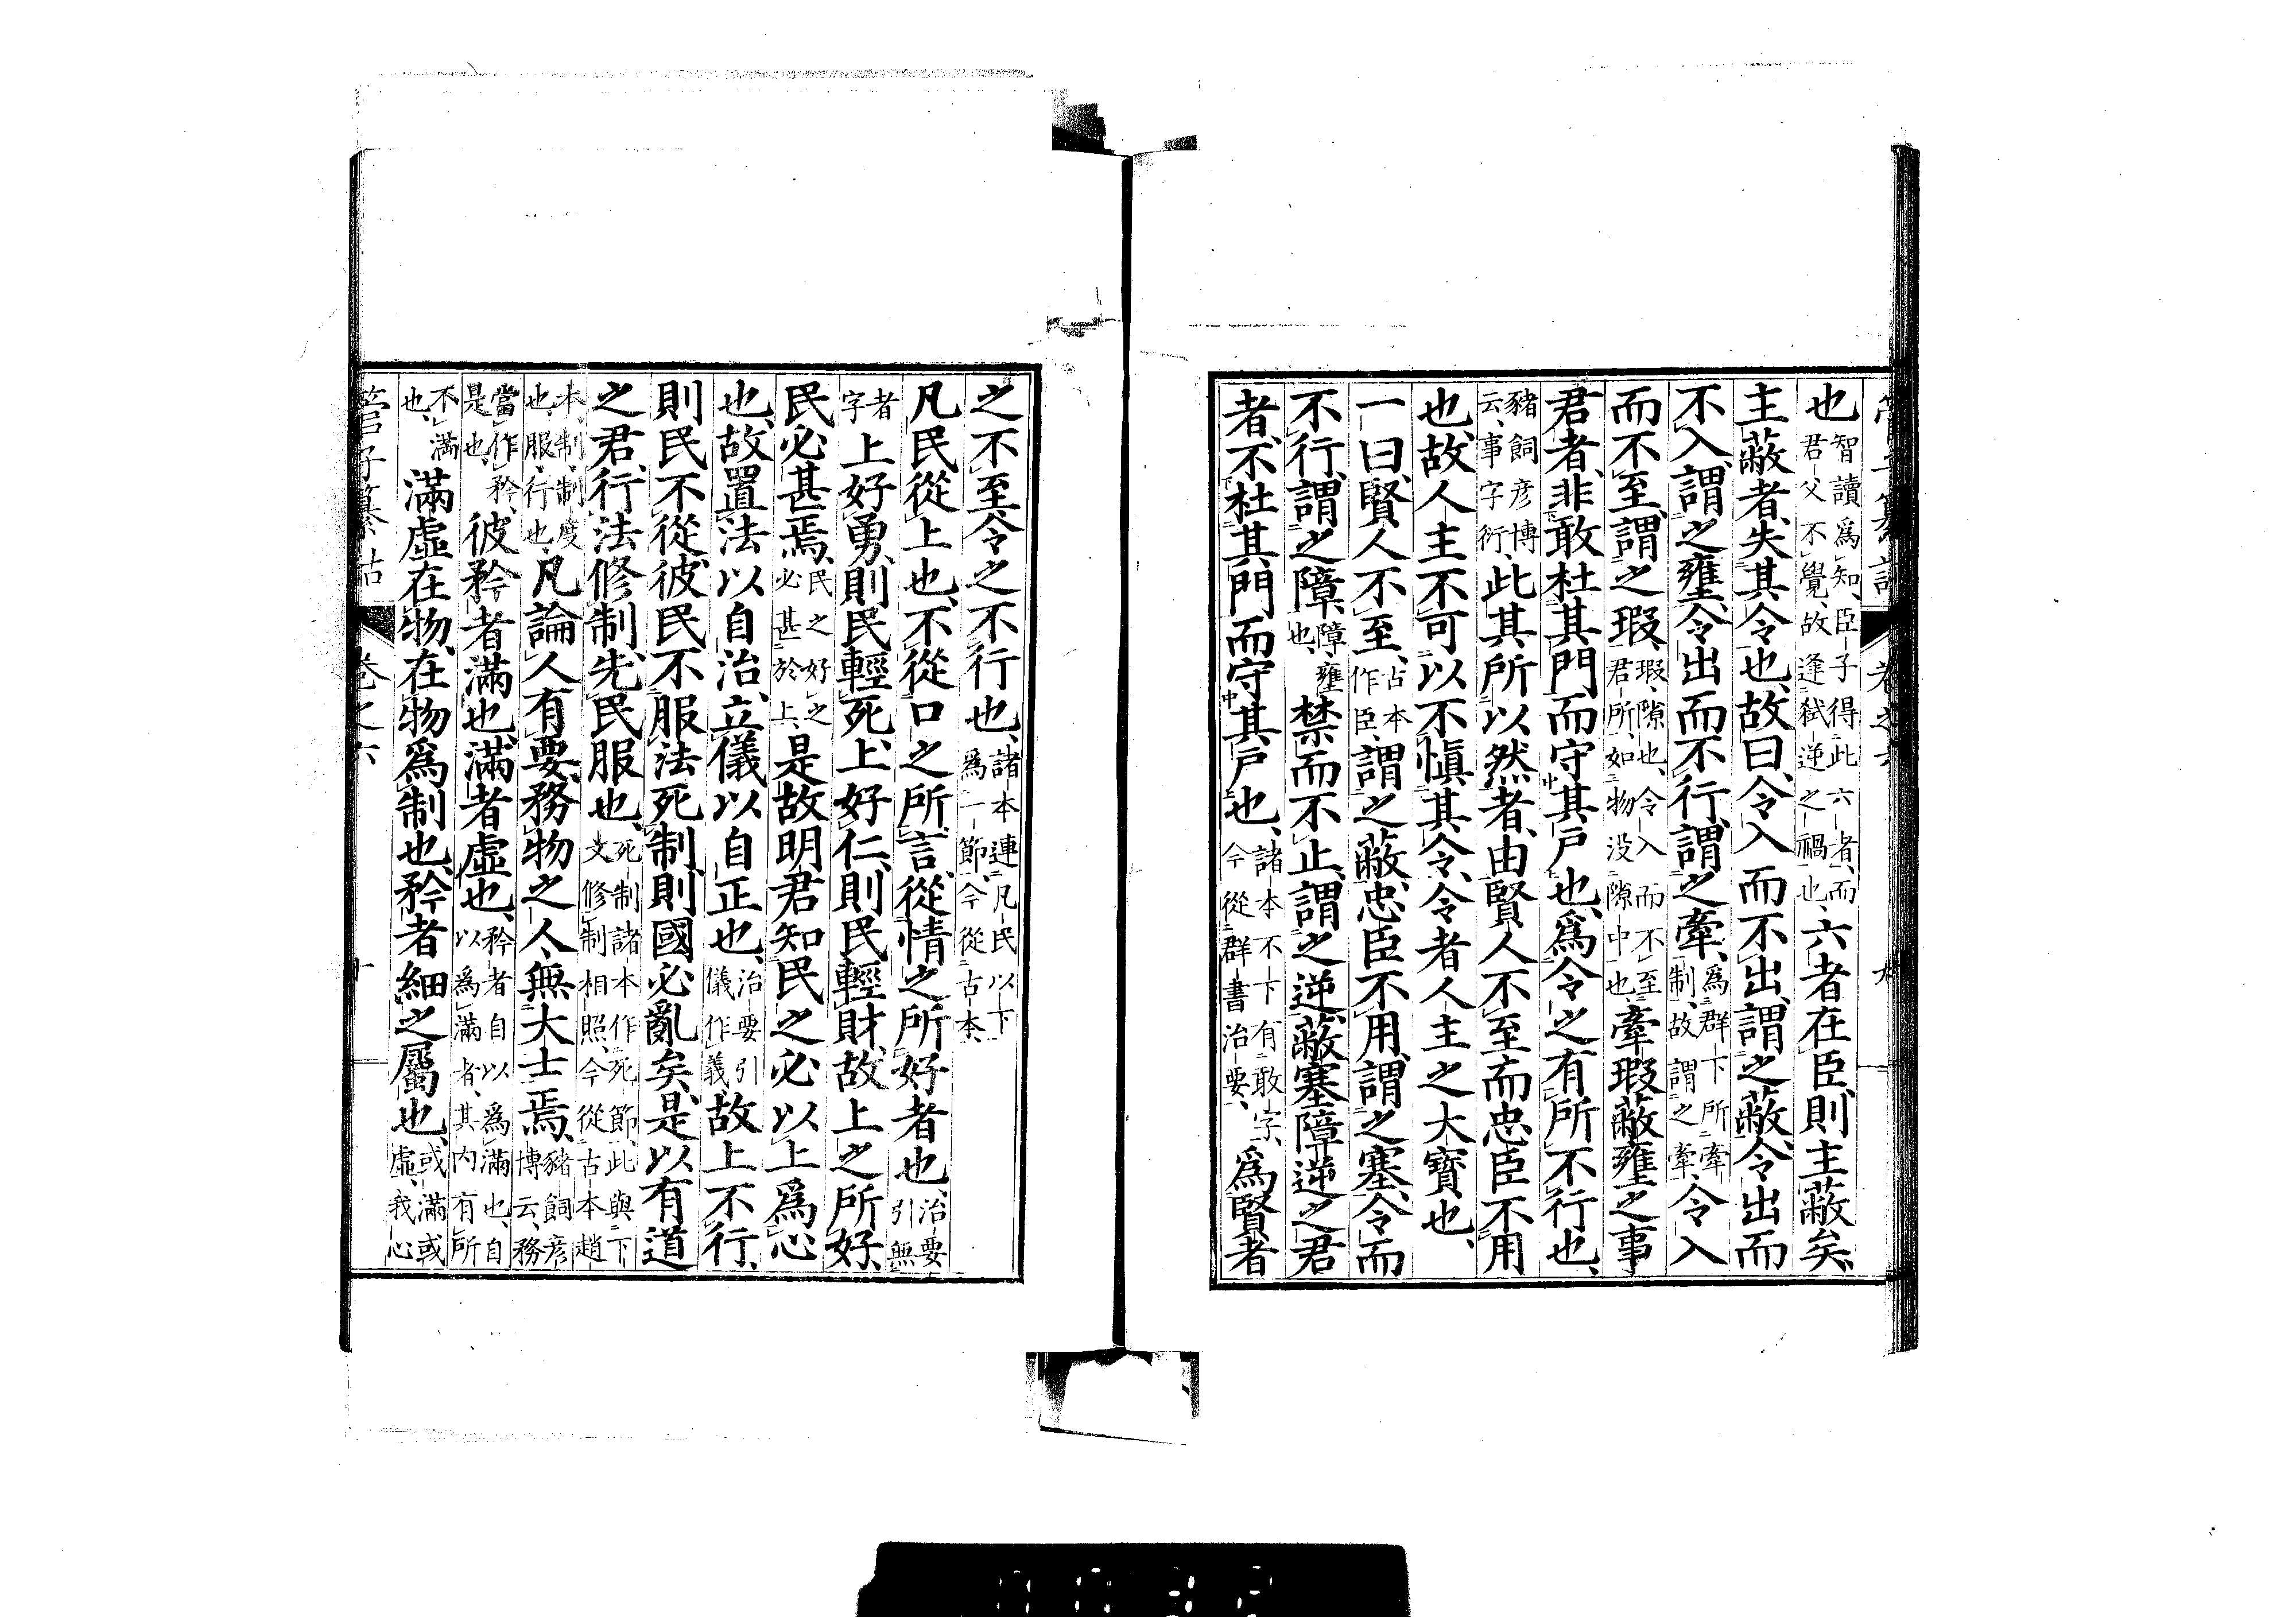 管子纂詁 卷之六 九
也智讀爲知、臣子得此六者、而君父不覺、故逢弑逆之禍也、六者在臣、則主蔽矣、
主蔽者、失其令也、故曰、令入而不出、謂之蔽、令出而
不入、謂之壅、令出而不行、謂之牽、爲群下所牽制、故謂之牽、令入
而不至、謂之瑕、瑕、隙也、令入而不至君所、如物没隙中也、牽瑕蔽壅之事
君者、非敢杜其門而守其戸也、爲令之有所不行也、
豬飼彦博云、事字衍、此其所以然者、由賢人不至而忠臣不用
也、故人主不可以不慎其令、令者人主之大寶也、
一曰、賢人不至、古本作臣、謂之蔽、忠臣不用、謂之塞、令而
不行、謂之障、障、壅也、禁而不止、謂之逆、蔽塞障逆之君
者、不杜其門而守其戸也、諸本不下有敢字、今從群書治要、爲賢者
之不至、令之不行也、諸本連凡民以下爲一節、今從古本、
凡民從上也、不從口之所言、從情之所好者也、治要引無
者字上好勇、則民輕死、上好仁、則民輕財、故上之所好、
民必甚焉、民之好之必甚於上、是故明君知民之必以上爲心
也、故置法以自治、立儀以自正也、治要引儀作義、故上不行、
則民不從、彼民不服法死制、則國必亂矣、是以有道
之君、行法修制、先民服也、死制諸本作死節、此與下文修制相照、今從古本趙
本、制、制度也、服、行也、凡論人有要、務物之人、無大士焉、豬飼彦博云、務
當作矜、是也、彼矜者滿也、滿者虛也、矜者自以爲滿也、自以爲滿者、其内有所
不滿也、滿虛在物、在物爲制也、矜者細之屬也、或滿或虛、我心
管子纂詁 卷之六 十